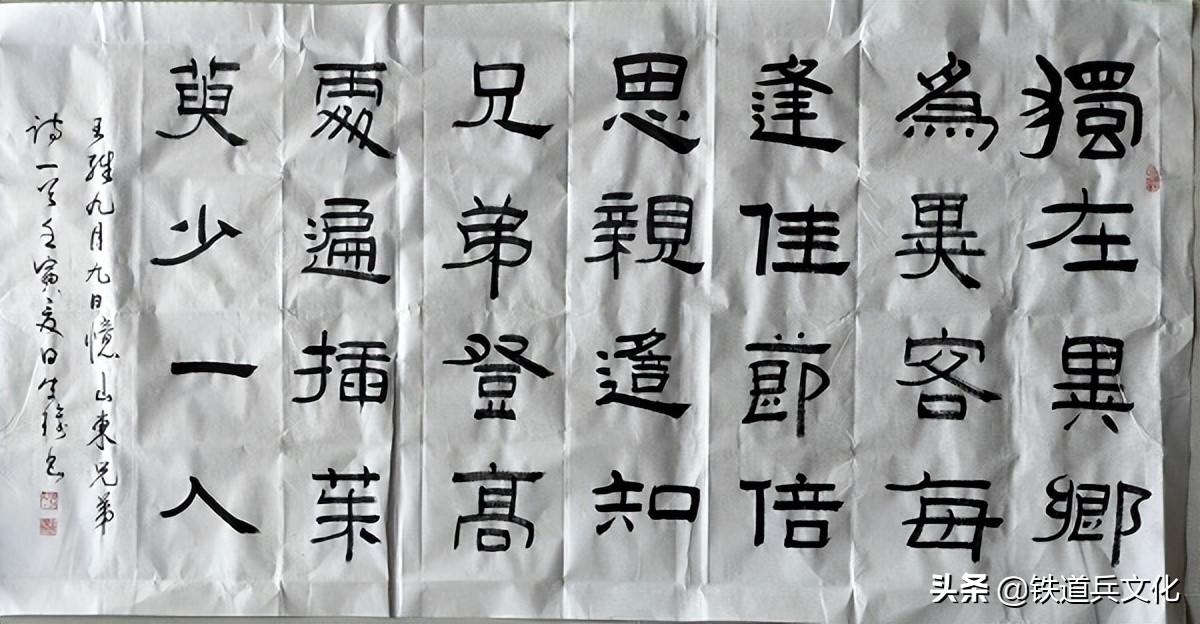 獨在異鄉
為異客每
逢佳節倍
思親遙知
兄弟登高
處遍插茱
萸少一人
王維九月九日憶山東兄弟
诗一首壬寅夏日
头条 @铁道兵文化